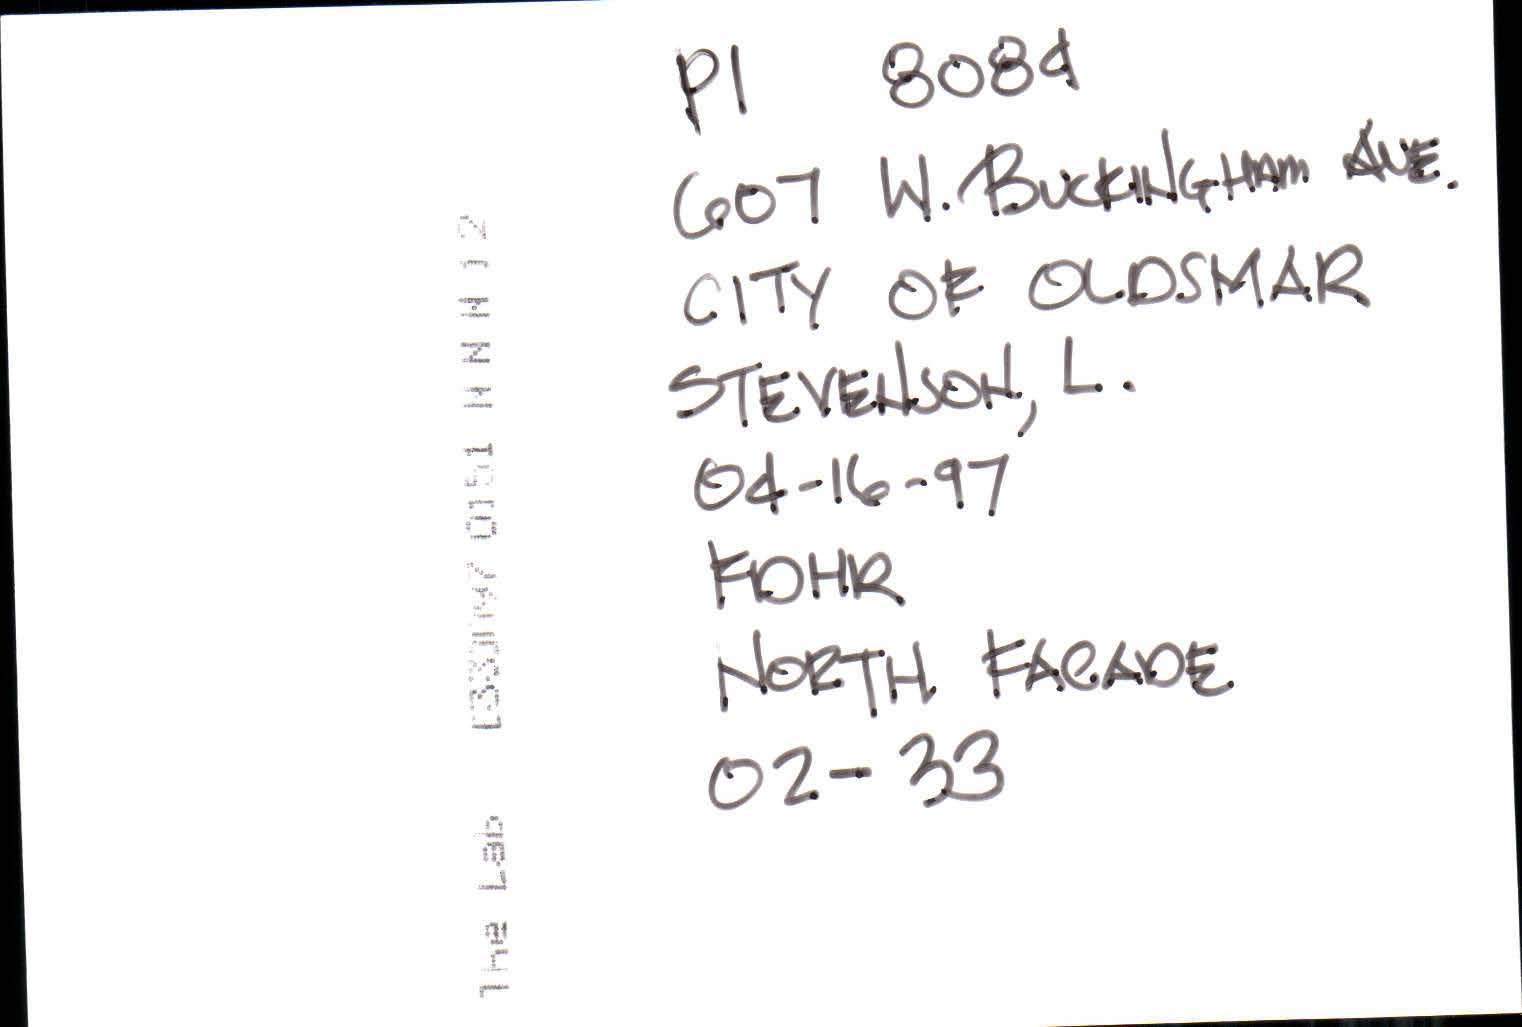 PI 8084
607 W. BUCKINGHAM AVE.
CITY OF OLDSMAR
STEVENSON, L.
04-16-97
FDHR
NORTH FACADE
02-33
The Lab